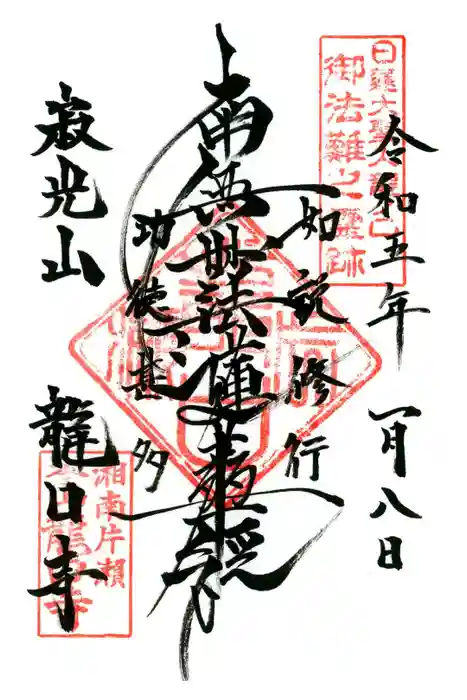 令和五年 一月八日
御法難之霊跡
如説修行
南無妙法蓮華経
功徳甚多
寂光山 龍口寺
湘南片瀬